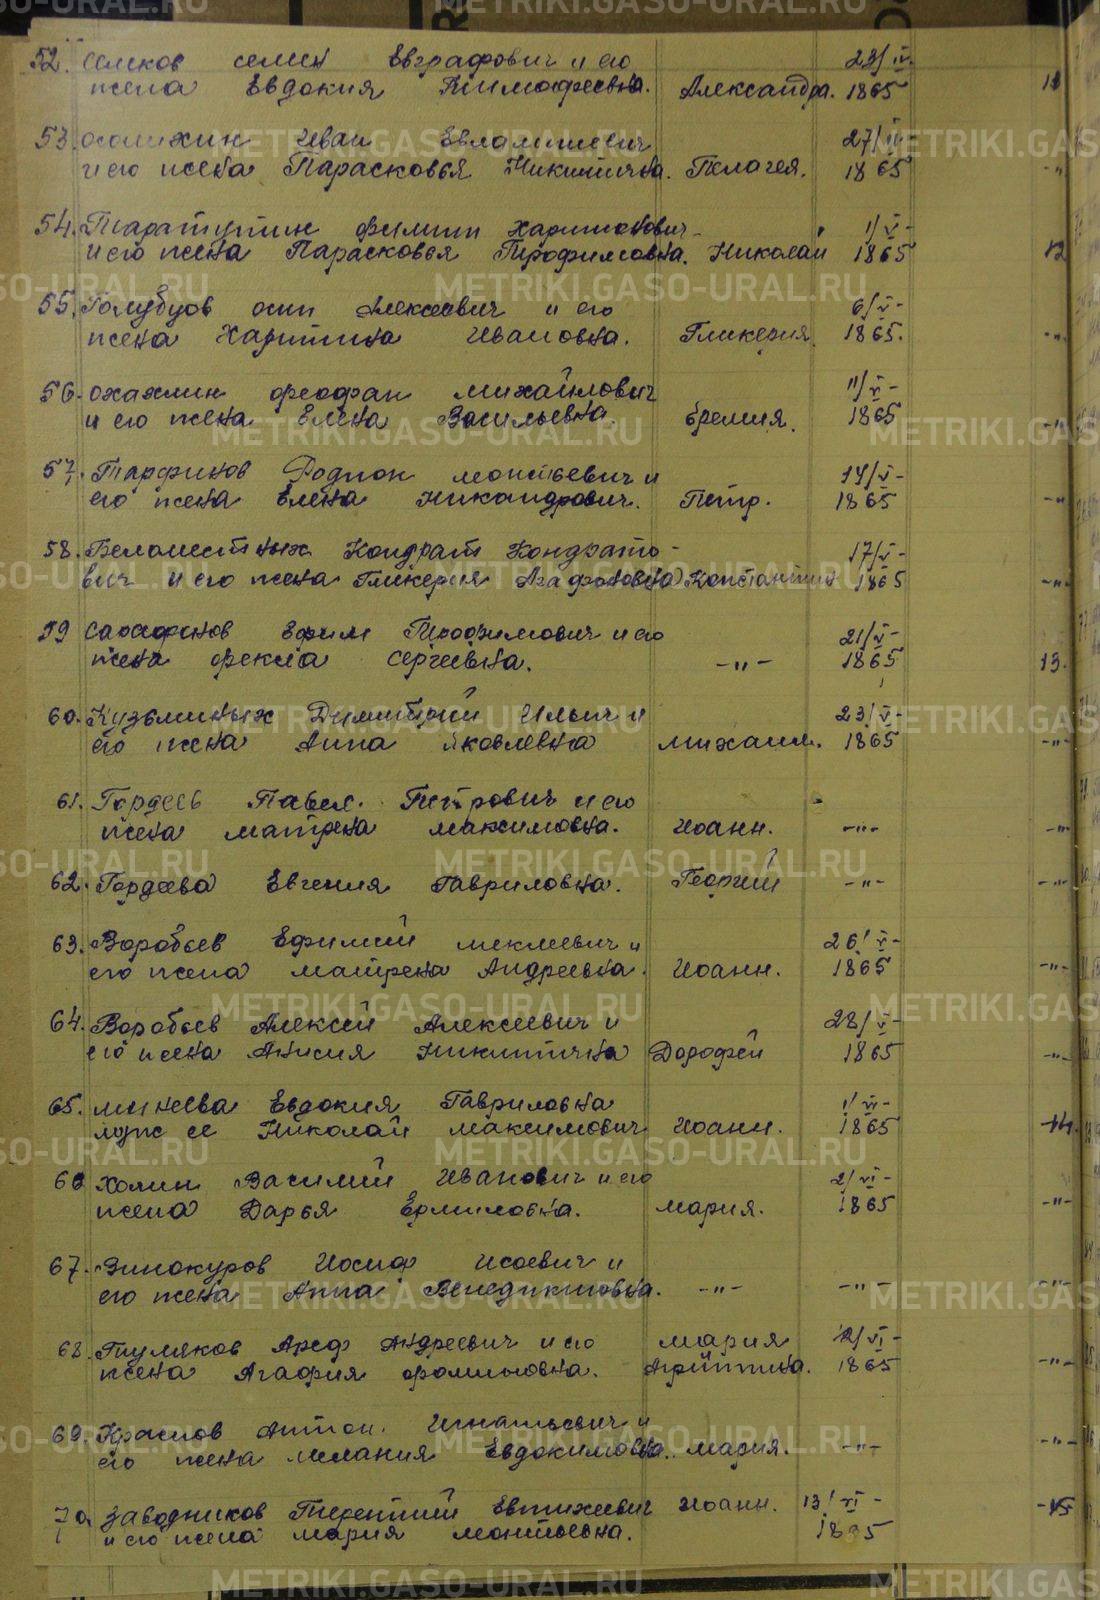 52. Семков семен Евграфович и его 23/IV-
жена Евдокия Тимофеевна. Александра. 1865 12
53. осмихин Иван Евлампиевич 27/IV-
и его жена Парасковья Никитична. Пелагея. 1865 -"-
54. Таратутин филипп Харитонович- 1/V-
и его жена Парасковья Трофимовна. Николай 1865 12
55. Голубцов осип Алексеевич и его 6/V-
жена Харитина Ивановна. Гликерия. 1865. -"-
56. феофан михайлович 11/V-
и его жена Елена Васильевна. Еремия. 1865 -"-
57. Парфинов Родион монтьевич и 14/V-
его жена Елена никандрович. Петр. 1865 -"-
58. Беломестных Кондрат Кондрато- 17/V-
вич и его жена Гликерия Агафоновна Константин 1865 -"-
59 Сафонов Ефим Трофимович и его 21/V-
жена фекла Сергеевна. -"- 1865 13.
60. Кузьминых Димитрий Ильич и 23/V-
его жена Анна яковлевна михаил. 1865 -"-
61. Гордеев Павел. Петрович и его
жена матрена максимовна. Иоанн. -"- -"-
62. Гордеева Евгения Гавриловна. Георгий -"- -"-
63. Воробьев Ефимий и 26/V-
его жена матрена Андреевна. Иоанн. 1865 -"-
64. Воробьев Алексей Алексеевич и 28/V-
его жена Анисия никитична Дорофей 1865 -"-
65. минеева Евдокия Гавриловна 1/VI-
муж ее Николай максимович Иоанн. 1865 14.
66 Холин Василий Иванович и его 2/VI-
жена Дарья Ермиловна. мария. 1865 -"-
67. Винокуров Иосиф Исаевич и
его жена Анна Венедиктовна. -"- -"- -"-
68. Гнумяков Ареф Андреевич и его мария 12/VI-
жена Агафия фоминовна. Агриппина. 1865 -"-
69. Краснов Антон. Игнатьевич и
его жена мелания Евдокимовна. мария. -"- -"-
70. Заводчиков Терентий Евтихеевич Иоанн. 13/VI- 15
и его жена мария монтьевна. 1865
METRIKI.GASO-URAL.RU